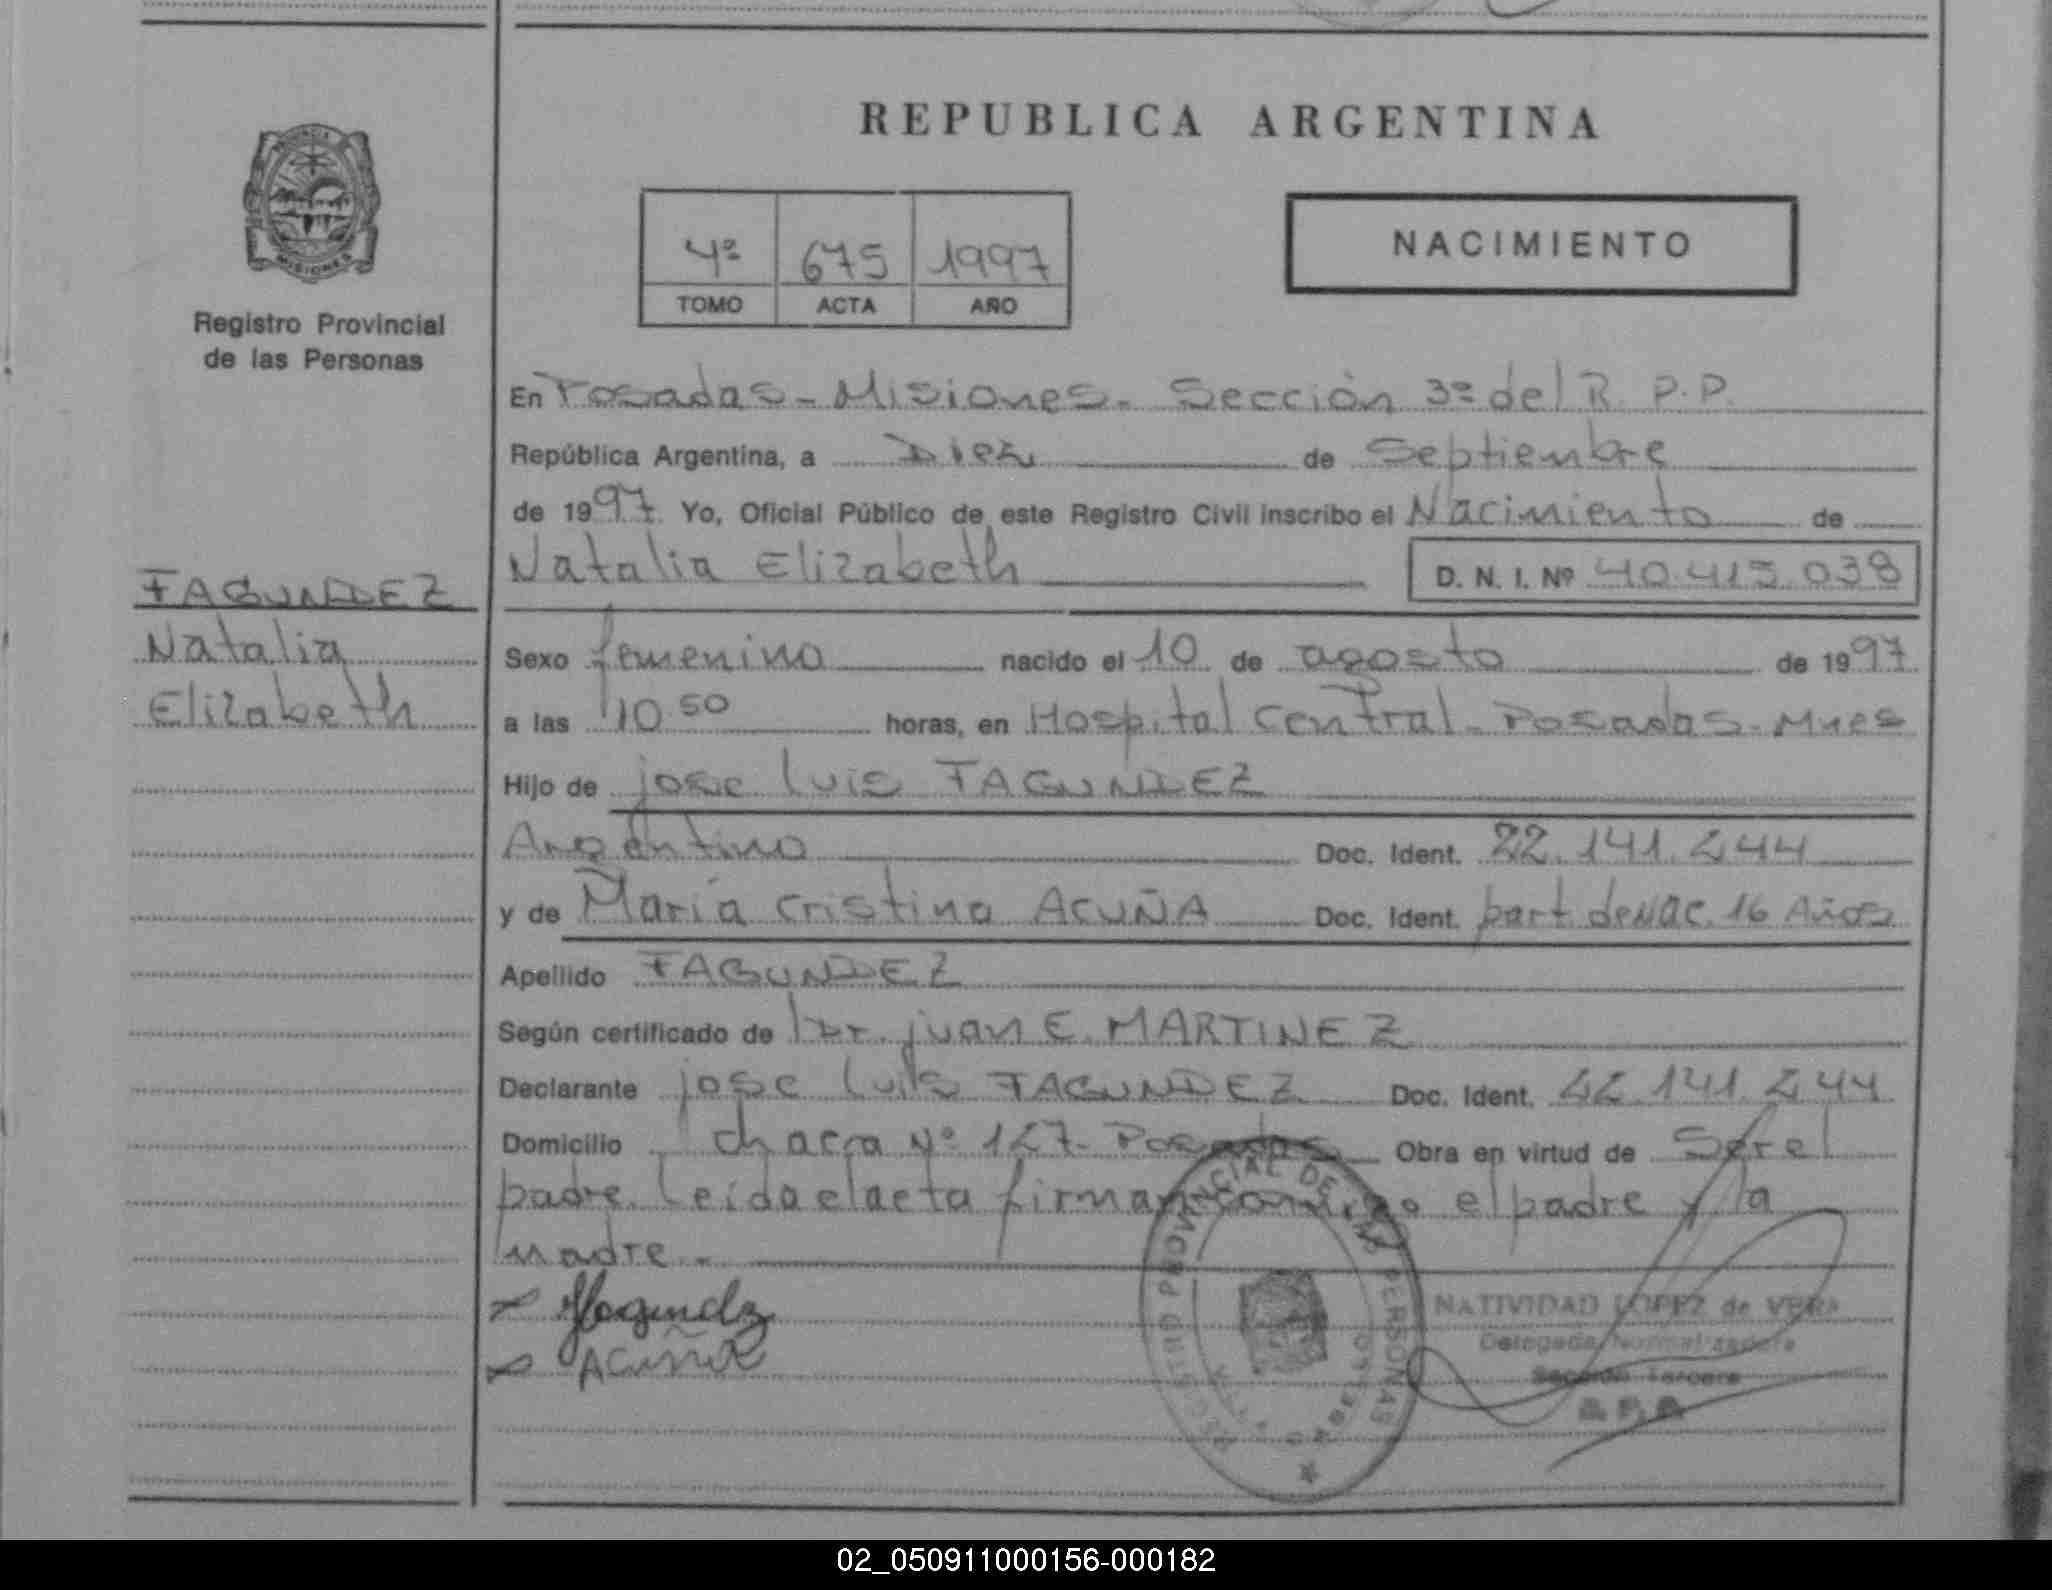 REPUBLICA ARGENTINA
PROVINCIA
MISIONES
Registro Provincial
de las Personas
4º 675 1997
TOMO ACTA AÑO
NACIMIENTO
En Posadas - Misiones - Sección 3ª del R. P. P.
República Argentina, a Diez de Septiembre
de 1997 Yo, Oficial Público de este Registro Civil inscribo el Nacimiento de
Natalia Elizabeth D. N. I. Nº 40.415.038
FAGUNDEZ
Natalia
Elizabeth
Sexo femenino nacido el 10 de agosto de 1997
a las 10.50 horas, en Hospital Central - Posadas - Mnes
Hijo de jose Luis FAGUNDEZ
Argentino Doc. Ident. 22.141.244
y de María Cristina ACUÑA Doc. Ident. part. de nac. 16 Años
Apellido FAGUNDEZ
Según certificado de Dr. juan E. MARTINEZ
Declarante jose Luis FAGUNDEZ Doc. Ident. 22.141.244
Domicilio chacra Nº 127 - Posadas Obra en virtud de Ser el
padre. Leida el acta firman conmigo el padre y la
madre. -
Fagundez
Acuña
REGISTRO PROVINCIAL DE LAS PERSONAS
NATIVIDAD LOPEZ de VERA
Delegada Normalizadora
Sección Tercera
02_050911000156-000182